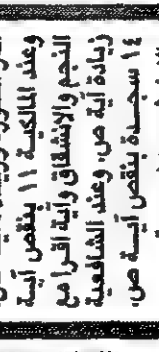 وعند المالكية ١١ بنقص آية
النجم والانشقاق وآية اقرأ مع
زيادة آية ص. وعند الشافعية
١٤ سجدة بنقص آية ص.